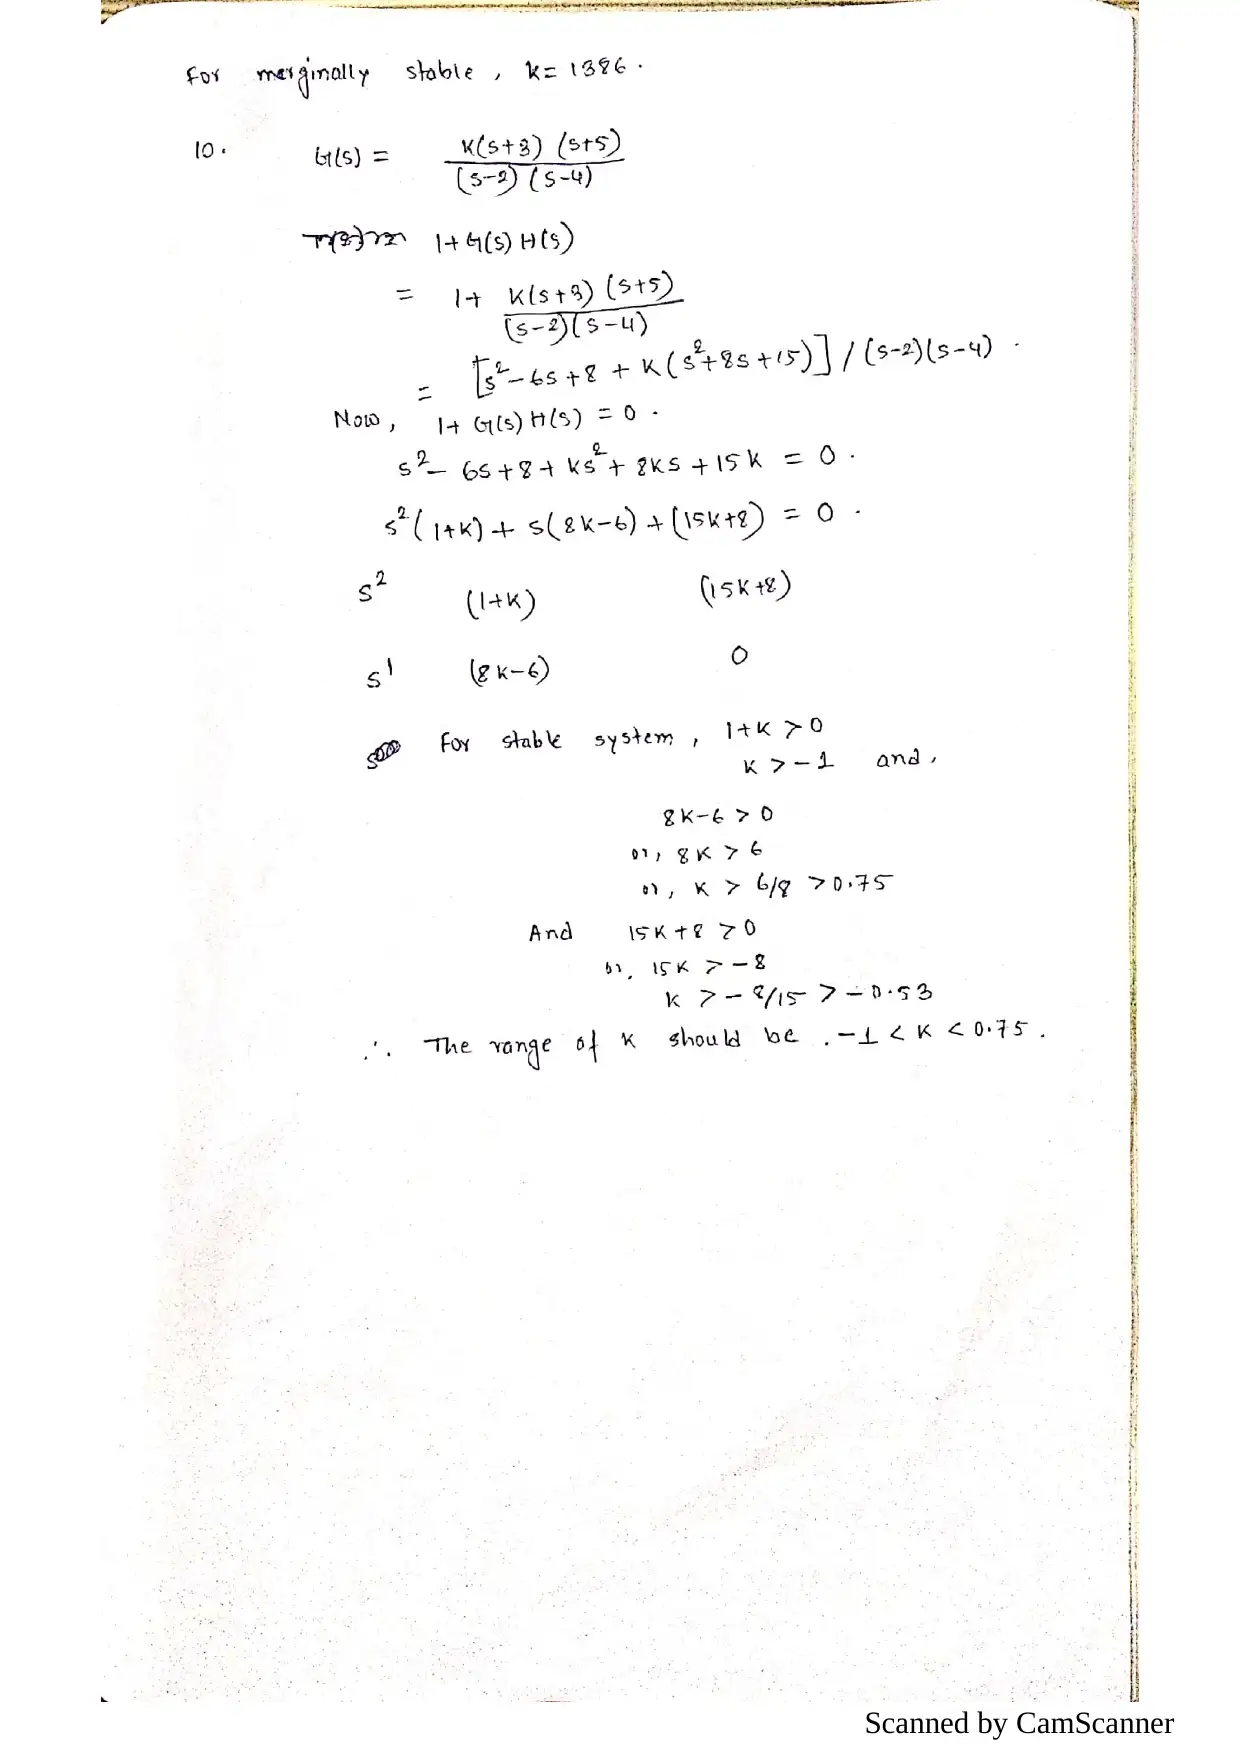 For merginally stable , K = 1386 .
10. G(s) = K(s+3) (s+5) / (s-2) (s-4)
1+ G(s) H(s)
= 1+ K(s+3) (s+5) / (s-2)(s-4)
= [s²-6s+8 + K(s²+8s+15)] / (s-2)(s-4) .
Now , 1+ G(s) H(s) = 0 .
s² - 6s+8+ Ks² + 8Ks + 15K = 0 .
s²(1+K) + s(8K-6) + (15K+8) = 0 .
s² (1+K) (15K+8)
s¹ (8K-6) 0
For stable system , 1+K > 0
K > -1 and ,
8K-6 > 0
or, 8K > 6
or, K > 6/8 > 0.75
And 15K+8 > 0
or, 15K > -8
K > -8/15 > -0.53
∴ The range of K should be . -1 < K < 0.75 .
Scanned by CamScanner